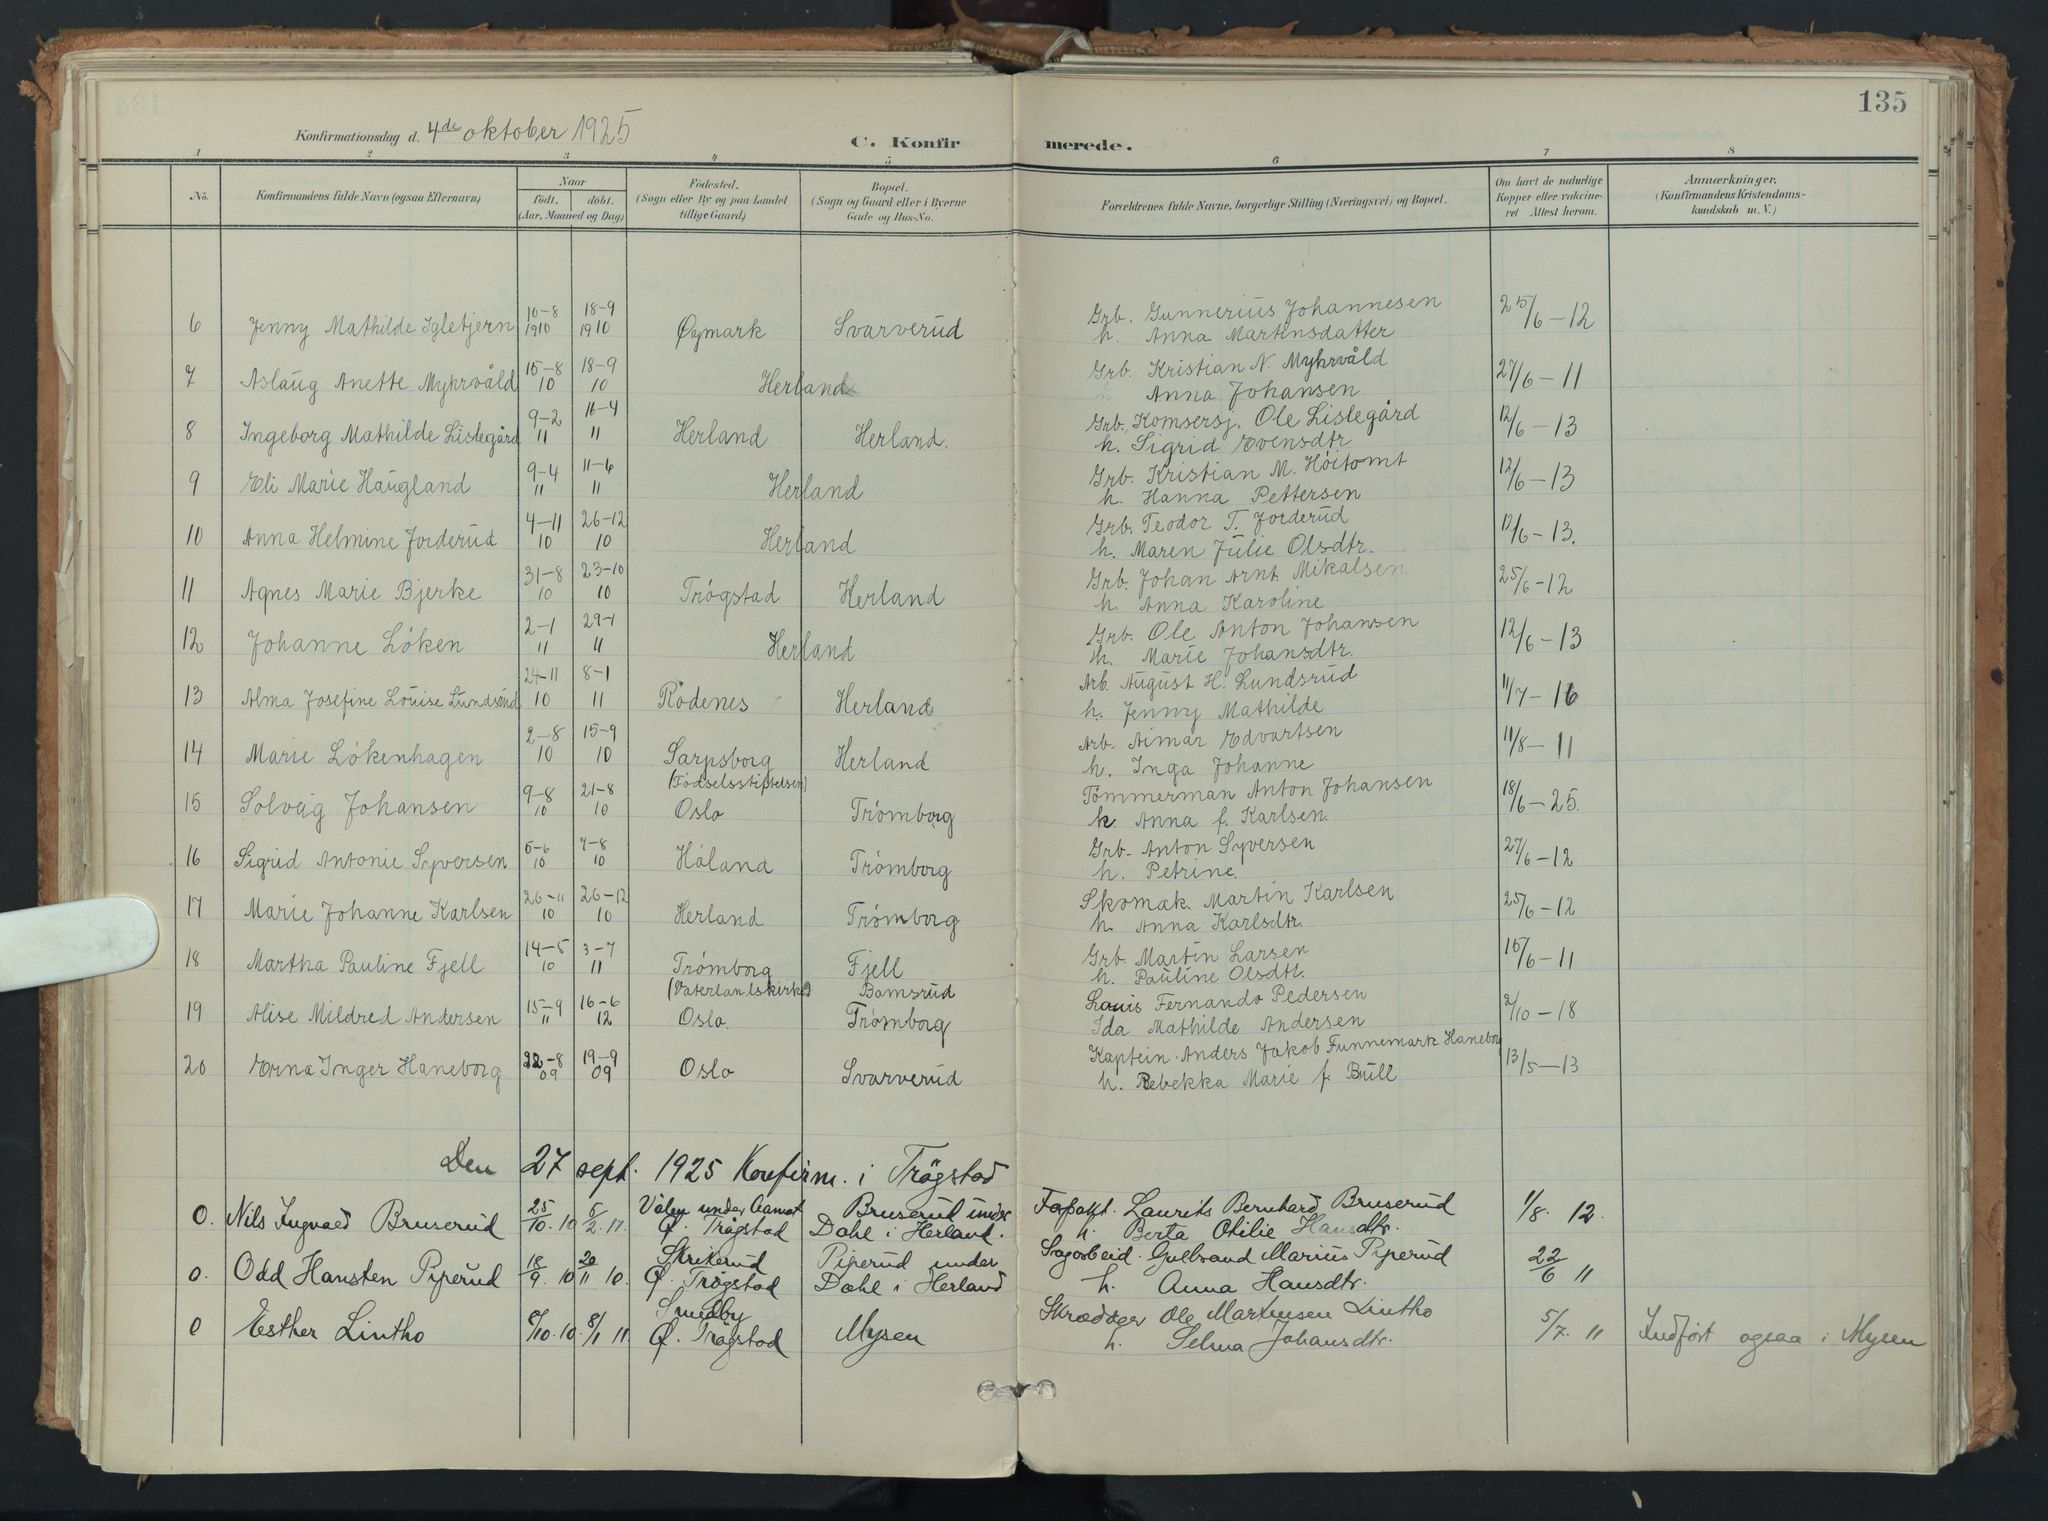 135
Konfirmationsdag d. 4de oktober 1925
C. Konfirmerede.
1 2 3 4 5 6 7 8
No. Konfirmandens fulde Navn (ogsaa Efternavn) Naar født. døbt. (Aar, Maaned og Dag) Fødested. (Sogn eller By og paa Landet tillige Gaard.) Bopæl. (Sogn og Gaard eller i Byerne Gade og Hus-No. Forældrenes fulde Navne, borgerlige Stilling (Næringsvei) og Bopæl. Om havt de naturlige Kopper eller vakcineret Attest herom. Anmærkninger. (Konfirmandens Kristendomskundskab m. V.)
6 Jenny Mathilde Igletjern 10-8 1910 18-9 1910 Øymark Svarverud Grb. Gunnerius Johannesen 25/6-12
h. Anna Martinsdatter
7 Aslaug Anette Myhrvåld 15-8 10 18-9 10 Herland Grb. Kristian N. Myhrvåld 27/6-11
Anna Johansen
8 Ingeborg Mathilde Listegård 9-2 11 16-4 11 Herland Herland. Grb. Komsersj. Ole Listegård 12/6-13
h. Sigrid Evensdtr
9 Eli Marie Haugland 9-4 11 11-6 11 Herland Grb. Kristian M. Høitomt 12/6-13
h. Hanna Pettersen
10 Anna Helmine Jorderud 4-11 10 26-12 10 Herland Grb. Teodor T. Jorderud 12/6-13.
h. Maren Julie Olsdtr.
11 Agnes Marie Bjerke 31-8 10 23-10 10 Trøgstad Herland Grb. Johan Arnt Mikalsen 25/6-12
h. Anna Karoline
12 Johanne Løken 2-1 11 29-1 11 Herland Grb. Ole Anton Johansen 12/6-13
h. Marie Johansdtr.
13 Alma Josefine Louise Lundsrud 24-11 10 8-1 11 Rødenes Herland Arb. August H. Lundsrud 11/7-16
h. Jenny Mathilde
14 Marie Løkenhagen 2-8 10 15-9 10 Sarpsborg Herland Arb. Aimar Edvartsen 11/8-11
h. Inga Johanne
15 Solveig Johansen 9-8 10 21-8 10 (Fødselsstiftelsen) Oslo Trømborg Tømmerman Anton Johansen 18/6-25.
h. Anna f. Karlsen.
16 Sigrid Antonie Syversen 5-6 10 7-8 10 Høland Trømborg Grb. Anton Syversen 27/6-12
h. Petrine.
17 Marie Johanne Karlsen 26-11 10 26-12 10 Herland Trømborg Skomak. Martin Karlsen 25/6-12
h. Anna Karlsdtr.
18 Martha Pauline Fjell 14-5 10 3-7 11 Trømborg Fjell Grb. Martin Larsen 15/6-11
h. Pauline Olsdtr.
19 Alise Mildred Andersen 15-9 11 16-6 12 (Vaterlandskirke) Oslo. Bamsrud Trømborg Louis Fernando Pedersen 2/10-18
Ida Mathilde Andersen
20 Erna Inger Haneborg 22-8 09 19-9 09 Oslo Svarverud Kaptein Anders Jakob Funnemark Haneborg 13/5-13
h. Rebekka Marie f. Bull
Den 27 sept. 1925 Konfirm. i Trøgstad
0. Nils Ingvald Bruserud 25/10. 10 5/2. 11. Ø. Trøgstad Bruserud under Dahl i Herland. Laurits Bernhard Bruserud 1/8. 12.
h. Berta Otilie Hansdtr.
0. Odd Hansten Piperud 18/9. 10 20/11 10. Skrikerud Ø. Trøgstad Piperud under Dahl i Herland Sagarbeid. Gulbrand Marius Piperud 22/6 11
h. Anna Hansdtr.
0 Esther Lintho 8/10. 10. 8/1 11. Smedby Ø. Trøgstad Mysen Skrædder Ole Martinsen Lintho 5/7. 11 Indført ogsaa i Mysen
h. Selma Johansdtr.